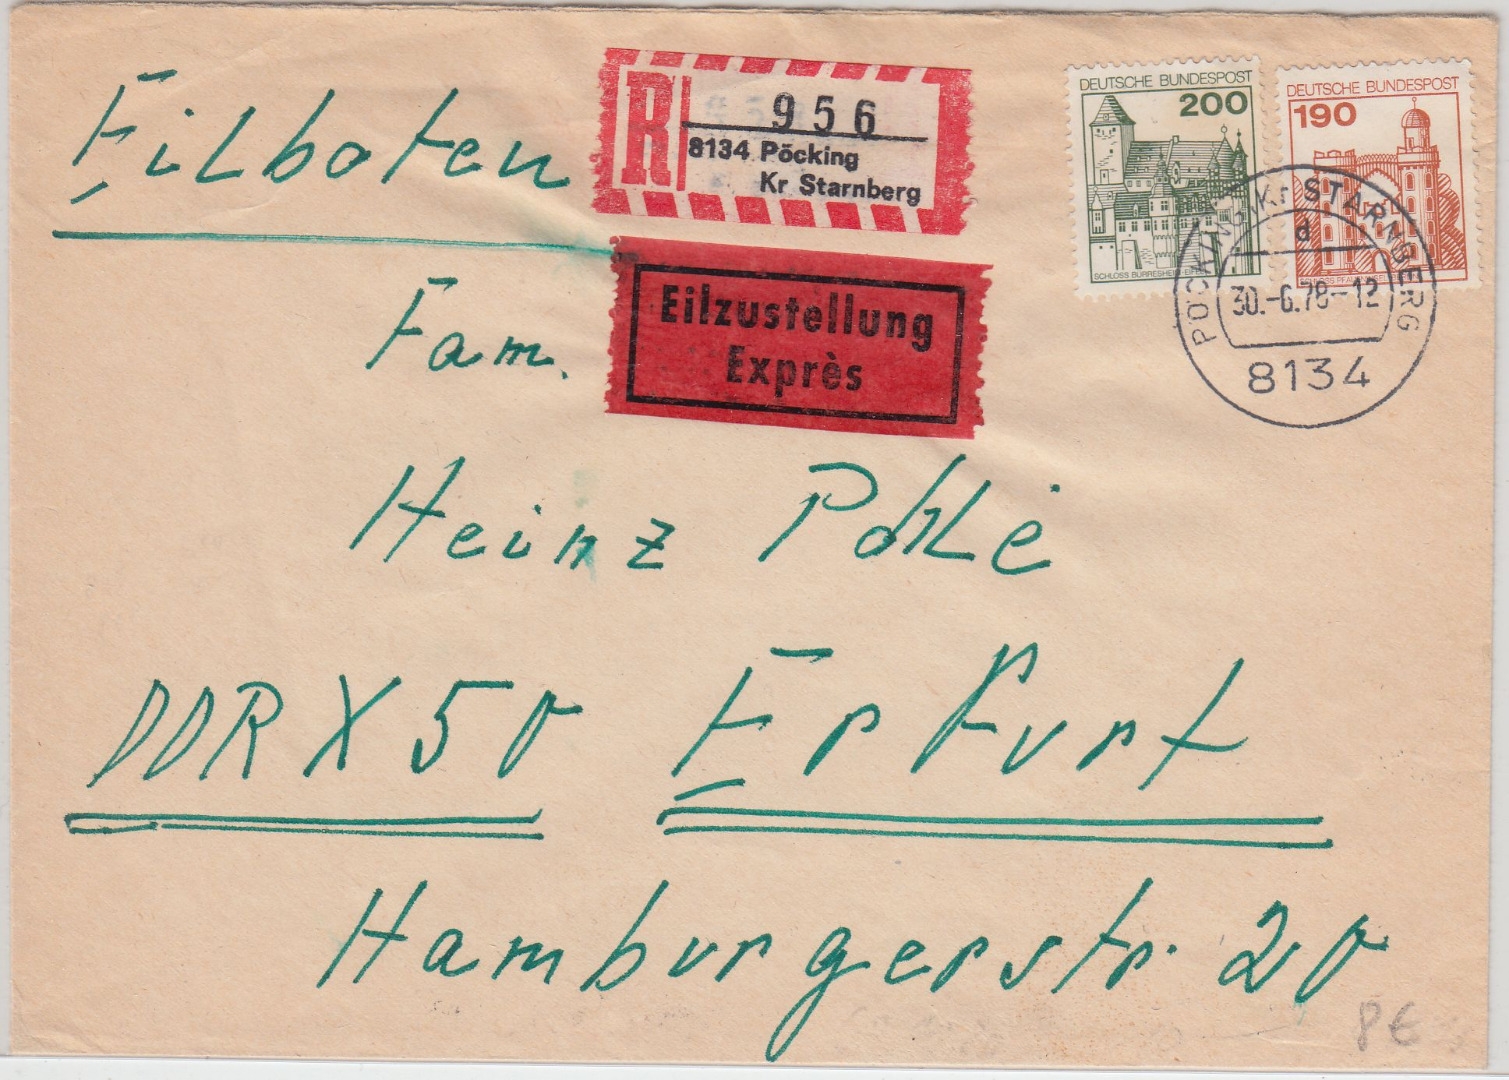 Eilboten
R 956
8134 Pöcking
Kr Starnberg
DEUTSCHE BUNDESPOST
200
SCHLOSS BÜRRESHEIM-EIFEL
DEUTSCHE BUNDESPOST
190
PÖCKING, Kr STARNBERG
d
30.-6.78--12
8134
Eilzustellung
Exprès
Fam.
Heinz Pohle
DDR X 50 Erfurt
Hamburgerstr. 20
8€